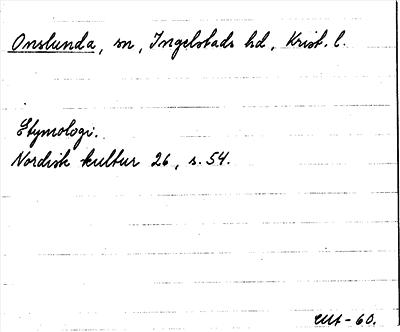 Onslunda, sn, Ingelstads hd, Krist. l.
Etymologi.
Nordisk kultur 26, s. 54.
-60.